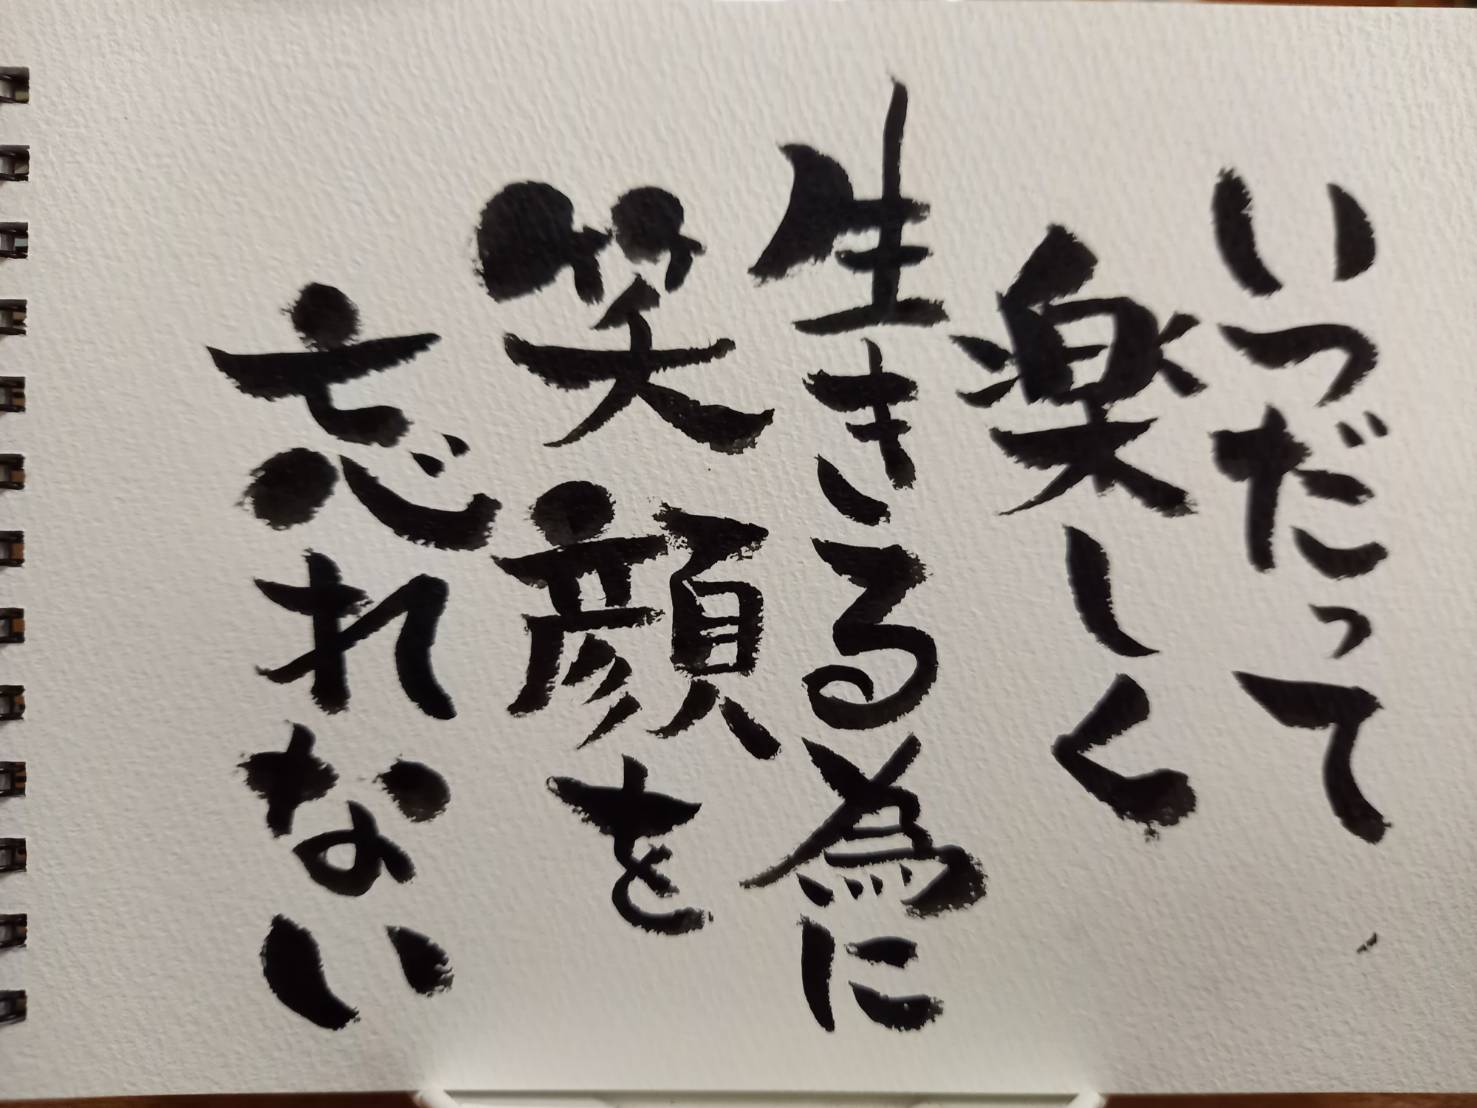 いつだって
楽しく
生きる為に
笑顔を
忘れない